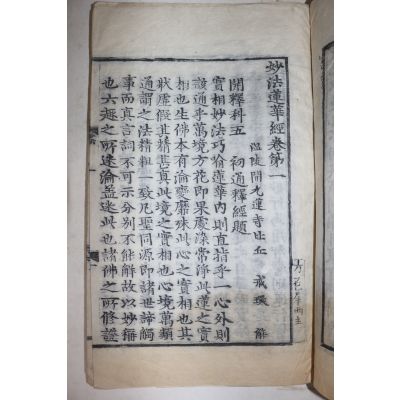 妙法蓮華經卷第一
溫陵開元蓮寺比丘 戒環 解
開釋科五 初通釋經題
實相妙法巧喻蓮華內則直指乎一心外則
該通乎萬境方花即果處染常淨此蓮之實
相也生佛本有淪變靡殊此心之實相也其
狀虛假其精甚真此境之實相也心境萬類
通謂之法精粗一致凡聖同源即諸世諦觸
事而真言詞不可示分別不能解故以妙稱
也六趣之所迷淪盖迷此也諸佛之所修證